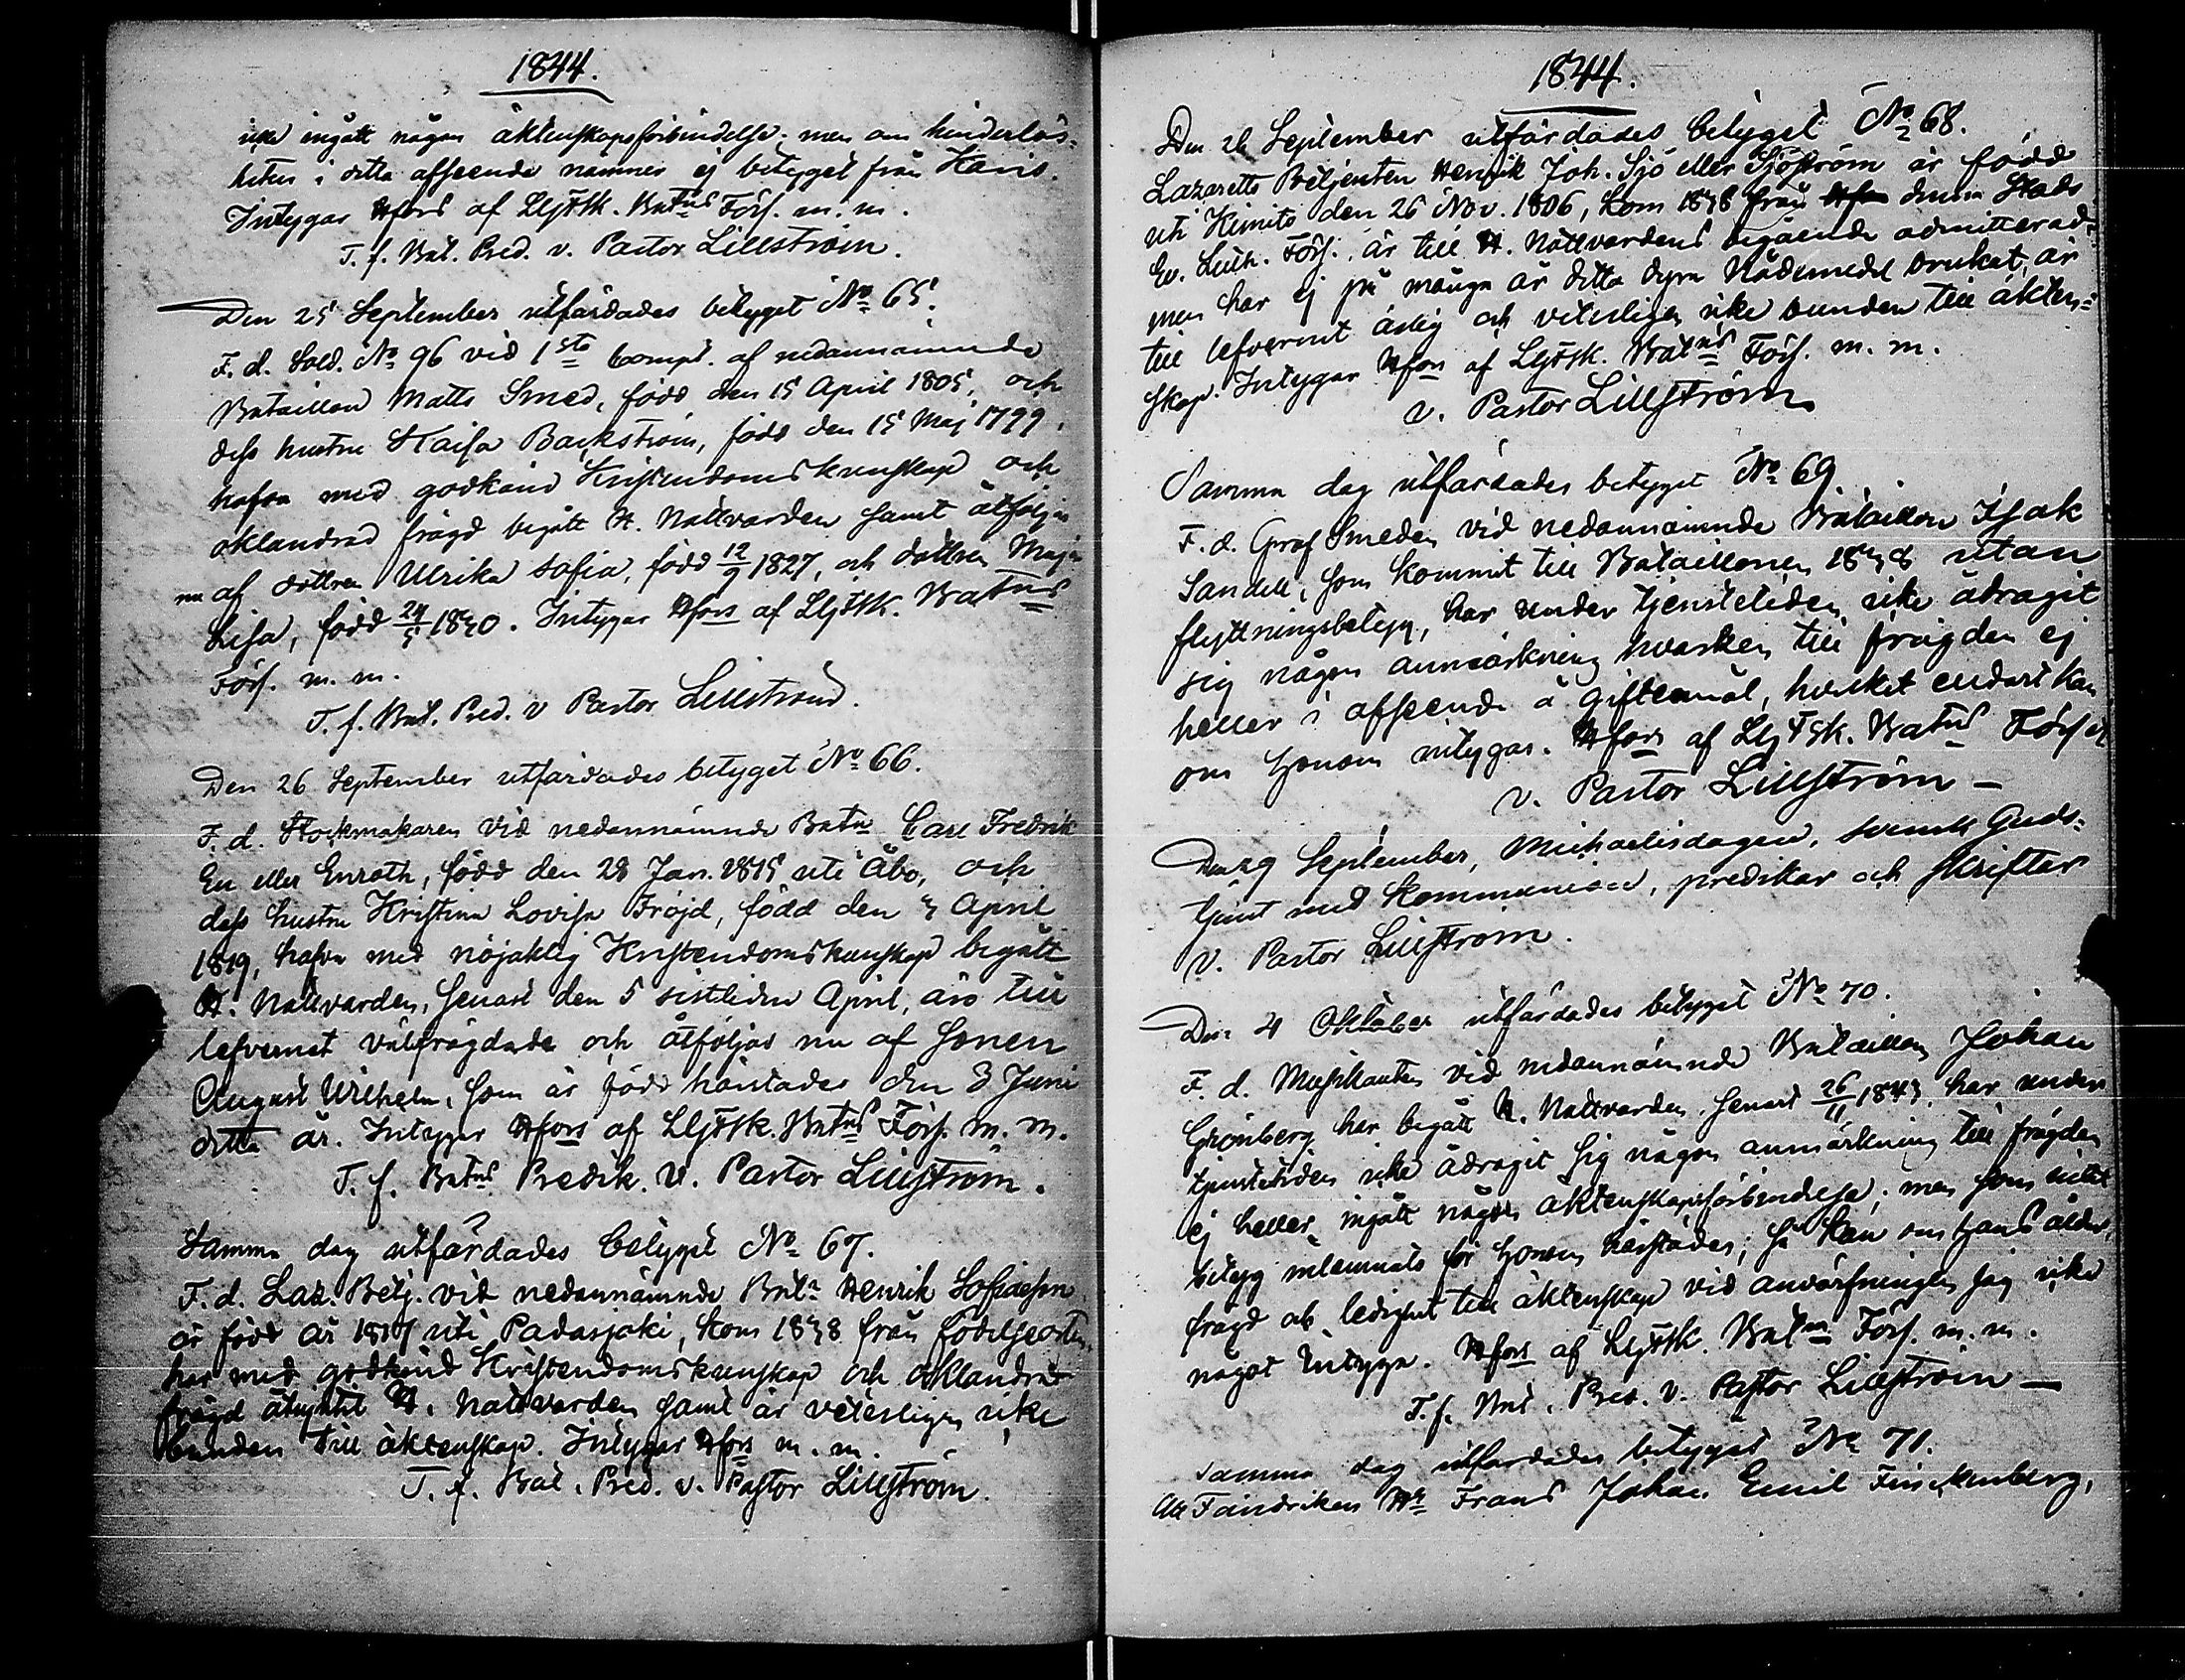 1844.
icke ingått någon äktenskapsförbindelse. men om hinderlös-
heten i detta afseende nämner ej betyget från Karis.
Intygar Hfors af LlgFSk. Batns Förs. m. m.
T. f. Bat. Pred. v. Pastor Lillström.
Den 25 September utfärdades betyget No 65.
F. d. Sold. No 96 vid 1sta Comp. af nedannämnde
Bataillon Matts Smed, född den 15 April 1805, och
dess hustru Kaisa Backström, född den 15 Maj 1799.
hafva med godkänd Kristendomskunskap och
oklandrad frägd begått H. Nattvarden samt åtföljas
nu af dottren Ulrika Sofia, född 12/9 1827, och dottren Maja
Lisa, född 24/5 1830. Intygar Hfors af LlgFSk. Batns
Förs. m. m.
T. f. Bat. Pred. v Pastor Lillström.
Den 26 September utfärdades betyget No 66.
F. d. Stockmakaren vid nedannämnde Batn Carl Fredrik
En eller Enroth, född den 28 Jan. 1815 uti Åbo, och
dess hustru Kristina Lovisa Fröjd, född den 3 April
1819, hafva med nöjaktig Kristendomskunskap begått
H. Nattvarden, senast den 5 sistlidne April, äro till
lefvernet välfrägdade och åtföljas nu af sonen
August Wilhelm, som är född härstädes den 3 Juni
detta år. Intygar Hfors af LlgFSk. Batns Förs. m. m.
T. f. Batns Predik. v. Pastor Lillström.
Samma dag utfärdades betyget No 67.
F. d. Laz. Betj. vid nedannämnde Batn Henrik
är född år 1817 uti Padasjoki, kom 1838 från födelseorten,
har med godkänd Kristendomskunskap och oklandrad
frägd åtnjutit H. Nattvarden samt är veterligen icke
bunden till äktenskap. Intygar Hfors m. m.
T. f. Bat. Pred. v. Pastor Lillström.
1844.
Den 26 September utfärdades betyget No 68.
Lazaretts Betjenten Henrik Joh. Sjö eller Sjöström är född
uti Kimito den 26 Nov. 1806, kom 1838 från denna Stads
Ev. Luth. Förs., är till H. Nattvardens begående admitterad,
men har ej på många år detta dyra Nådemedel brukat, är
till lefvernet ärlig och veterligen icke bunden till äkten-
skap. Intygar Hfors af LlgFSk. Batns Förs. m. m.
v. Pastor Lillström
Samma dag utfärdades betyget No 69.
F. d. Grof Smeden vid nedannämnde Bataillon Isak
Sandell, som kommit till Bataillonen 1838 utan
flyttningsbetyg, har under tjenstetiden icke ådragit
sig någon anmärkning hvarken till frägden ej
heller i afseende å giftermål, hvilket endast kan
om honom intygas. Hfors af LlgFSk. Batns Förs
v. Pastor Lillström —
Den 29 September, Michaelisdagen, svensk Guds-
tjenst med Kommunion, predikar och skriftar
v. Pastor Lillström.
Den 4 Oktober utfärdades betyget No 70.
F. d. Musikanten vid nedannämnde Bataillon Johan
Grönberg har begått H. Nattvarden senast 26/11 1843, har under
tjenstetiden icke ådragit sig någon anmärkning till frägden
ej heller ingått någon äktenskapsförbindelse; men som intet
betyg inlemnats för honom härstädes, så kan om hans ålder,
frägd och ledighet till äktenskap vid anvärfningen jag icke
något intyga. Hfors af LlgFSk. Batns Förs. m. m.
T. f. Bat. Pred. v. Pastor Lillström —
Samma dag utfärdades betyget No 71.
Att Fändriken Hr Frans Johan Emil Finckenberg,